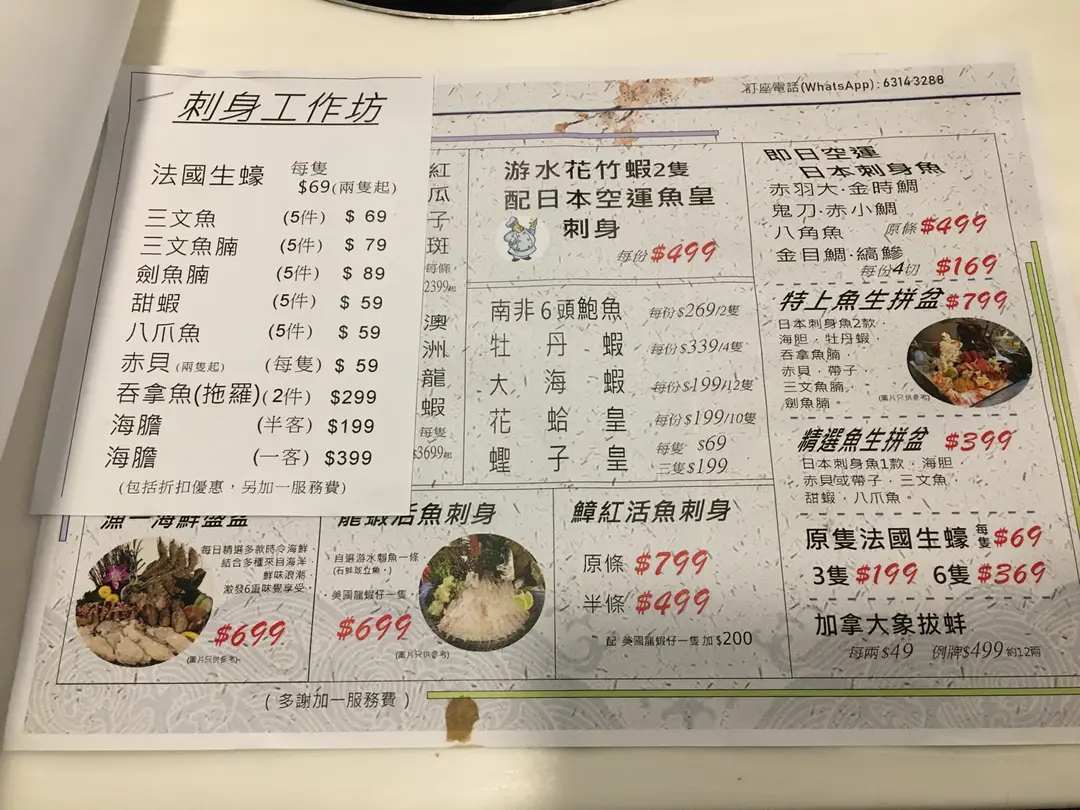 刺身工作坊
法國生蠔 每隻 $69(兩隻起)
三文魚 (5件) $ 69
三文魚腩 (5件) $ 79
劍魚腩 (5件) $ 89
甜蝦 (5件) $ 59
八爪魚 (5件) $ 59
赤貝(兩隻起) (每隻) $ 59
吞拿魚(拖羅)(2件) $299
海膽 (半客) $199
海膽 (一客) $399
(包括折扣優惠，另加一服務費)
訂座電話(WhatsApp) : 6314 3288
紅瓜子斑
每條,
2399起
澳洲龍蝦
每隻
$3699起
游水花竹蝦2隻
配日本空運魚皇
刺身
每份 $499
南非6頭鮑魚 每份 $269/2隻
牡丹蝦 每份 $339/4隻
大海蝦 每份 $199/12隻
花蛤皇 每份 $199/10隻
蟶子皇 每隻 $69
三隻 $199
即日空運
日本刺身魚
赤羽大·金時鯛
鬼刀·赤小鯛
八角魚 原條 $499
金目鯛·縞鰺
每份4切 $169
特上魚生拼盆 $799
日本刺身魚2款,
海胆,牡丹蝦,
吞拿魚腩,
赤貝,帶子,
三文魚腩,
劍魚腩。
(圖片只供參考)
精選魚生拼盆 $399
日本刺身魚1款,海胆,
赤貝或帶子,三文魚,
甜蝦,八爪魚。
原隻法國生蠔 每隻 $69
3隻 $199 6隻 $369
加拿大象拔蚌
每兩 $49 例牌 $499 約12兩
漁一海鮮盤盆
每日精選多款時令海鮮,
結合多種來自海洋,
鮮味浪潮,
激發6重味覺享受。
$699
(圖片只供參考)
龍蝦活魚刺身
自選游水魚一條
美國龍蝦仔一隻
$699
(圖片只供參考)
鱆紅活魚刺身
原條 $799
半條 $499
配 美國龍蝦仔一隻 加 $200
( 多謝加一服務費 )